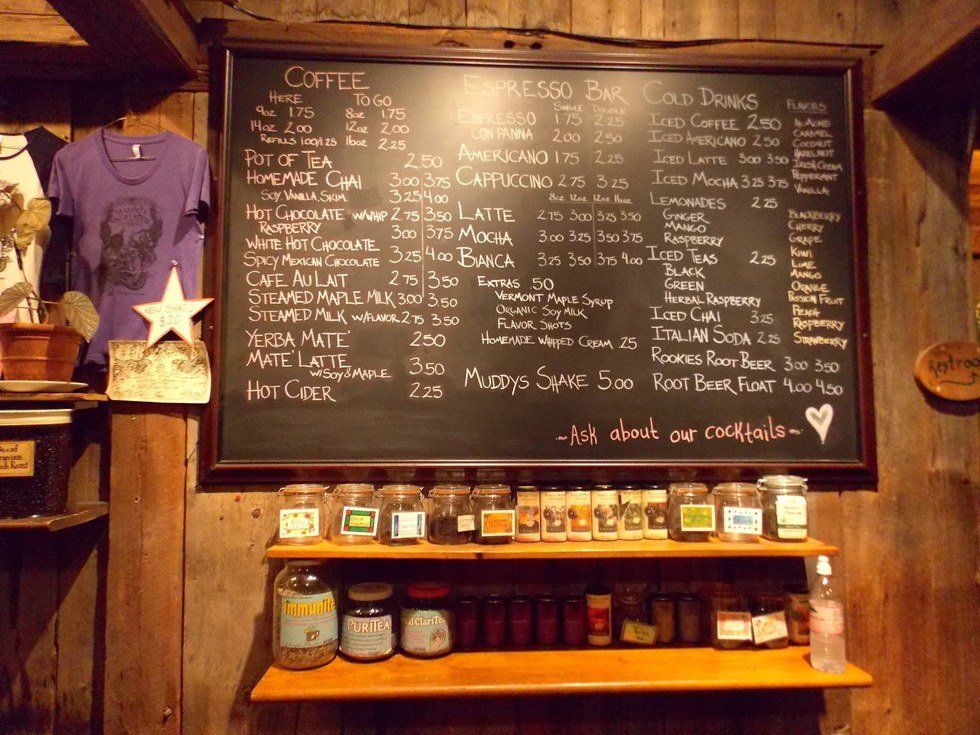 COFFEE
HERE TO GO
9oz 1.75 8oz 1.75
14oz 2.00 12oz 2.00
REFILLS 1.00/1.25 16oz 2.25
POT OF TEA 2.50
HOMEMADE CHAI 3.00 3.75
SOY, VANILLA, SKIM. 3.25 4.00
HOT CHOCOLATE W/WHIP 2.75 3.50
RASPBERRY 3.00 3.75
WHITE HOT CHOCOLATE
SPICY MEXICAN CHOCOLATE 3.25 4.00
CAFE AU LAIT 2.75 3.50
STEAMED MAPLE MILK 3.00 3.50
STEAMED MILK W/FLAVOR 2.75 3.50
YERBA MATE' 2.50
MATE' LATTE 3.50
W/SOY & MAPLE
HOT CIDER 2.25
ESPRESSO BAR
SINGLE DOUBLE
ESPRESSO 1.75 2.25
CON PANNA 2.00 2.50
AMERICANO 1.75 2.25
CAPPUCCINO 2.75 3.25
8oz 12oz 12oz 16oz
LATTE 2.75 3.00 3.25 3.50
MOCHA 3.00 3.25 3.50 3.75
BIANCA 3.25 3.50 3.75 4.00
EXTRAS .50
VERMONT MAPLE SYRUP
ORGANIC SOY MILK
FLAVOR SHOTS
HOMEMADE WHIPPED CREAM .25
MUDDYS SHAKE 5.00
COLD DRINKS
ICED COFFEE 2.50
ICED AMERICANO 2.50
ICED LATTE 3.00 3.50
ICED MOCHA 3.25 3.75
LEMONADES 2.25
GINGER
MANGO
RASPBERRY
ICED TEAS 2.25
BLACK
GREEN
HERBAL RASPBERRY
ICED CHAI 3.25
ITALIAN SODA 2.25
ROOKIES ROOT BEER 3.00 3.50
ROOT BEER FLOAT 4.00 4.50
FLAVORS
ALMOND
CARAMEL
COCONUT
HAZELNUT
IRISH CREAM
PEPPERMINT
VANILLA
BLACKBERRY
CHERRY
GRAPE
KIWI
LIME
MANGO
ORANGE
PASSION FRUIT
PEACH
RASPBERRY
STRAWBERRY
~ASK about our cocktails~
NEW SHIRTS
Restroom
Decaf
Peruvian
French Roast
immunitea
PURITEA
CLARITEA